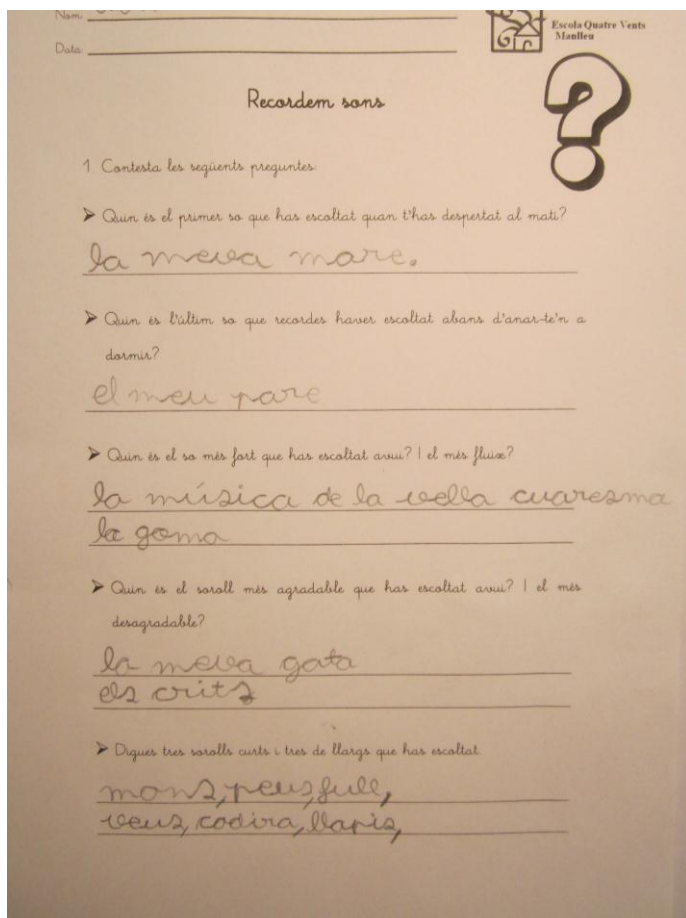 Nom
Escola Quatre Vents
Manlleu
Data
Recordem sons
1 Contesta les següents preguntes:
➤ Quin és el primer so que has escoltat quan t'has despertat al matí?
la meva mare.
➤ Quin és l'últim so que recordes haver escoltat abans d'anar-te'n a
dormir?
el meu pare
➤ Quin és el so més fort que has escoltat avui? I el més fluixe?
la música de la vella cuaresma
la goma
➤ Quin és el soroll més agradable que has escoltat avui? I el més
desagradable?
la meva gata
els crits
➤ Digues tres sorolls curts i tres de llargs que has escoltat.
mans, peus, full,
veus, codira, llapis,